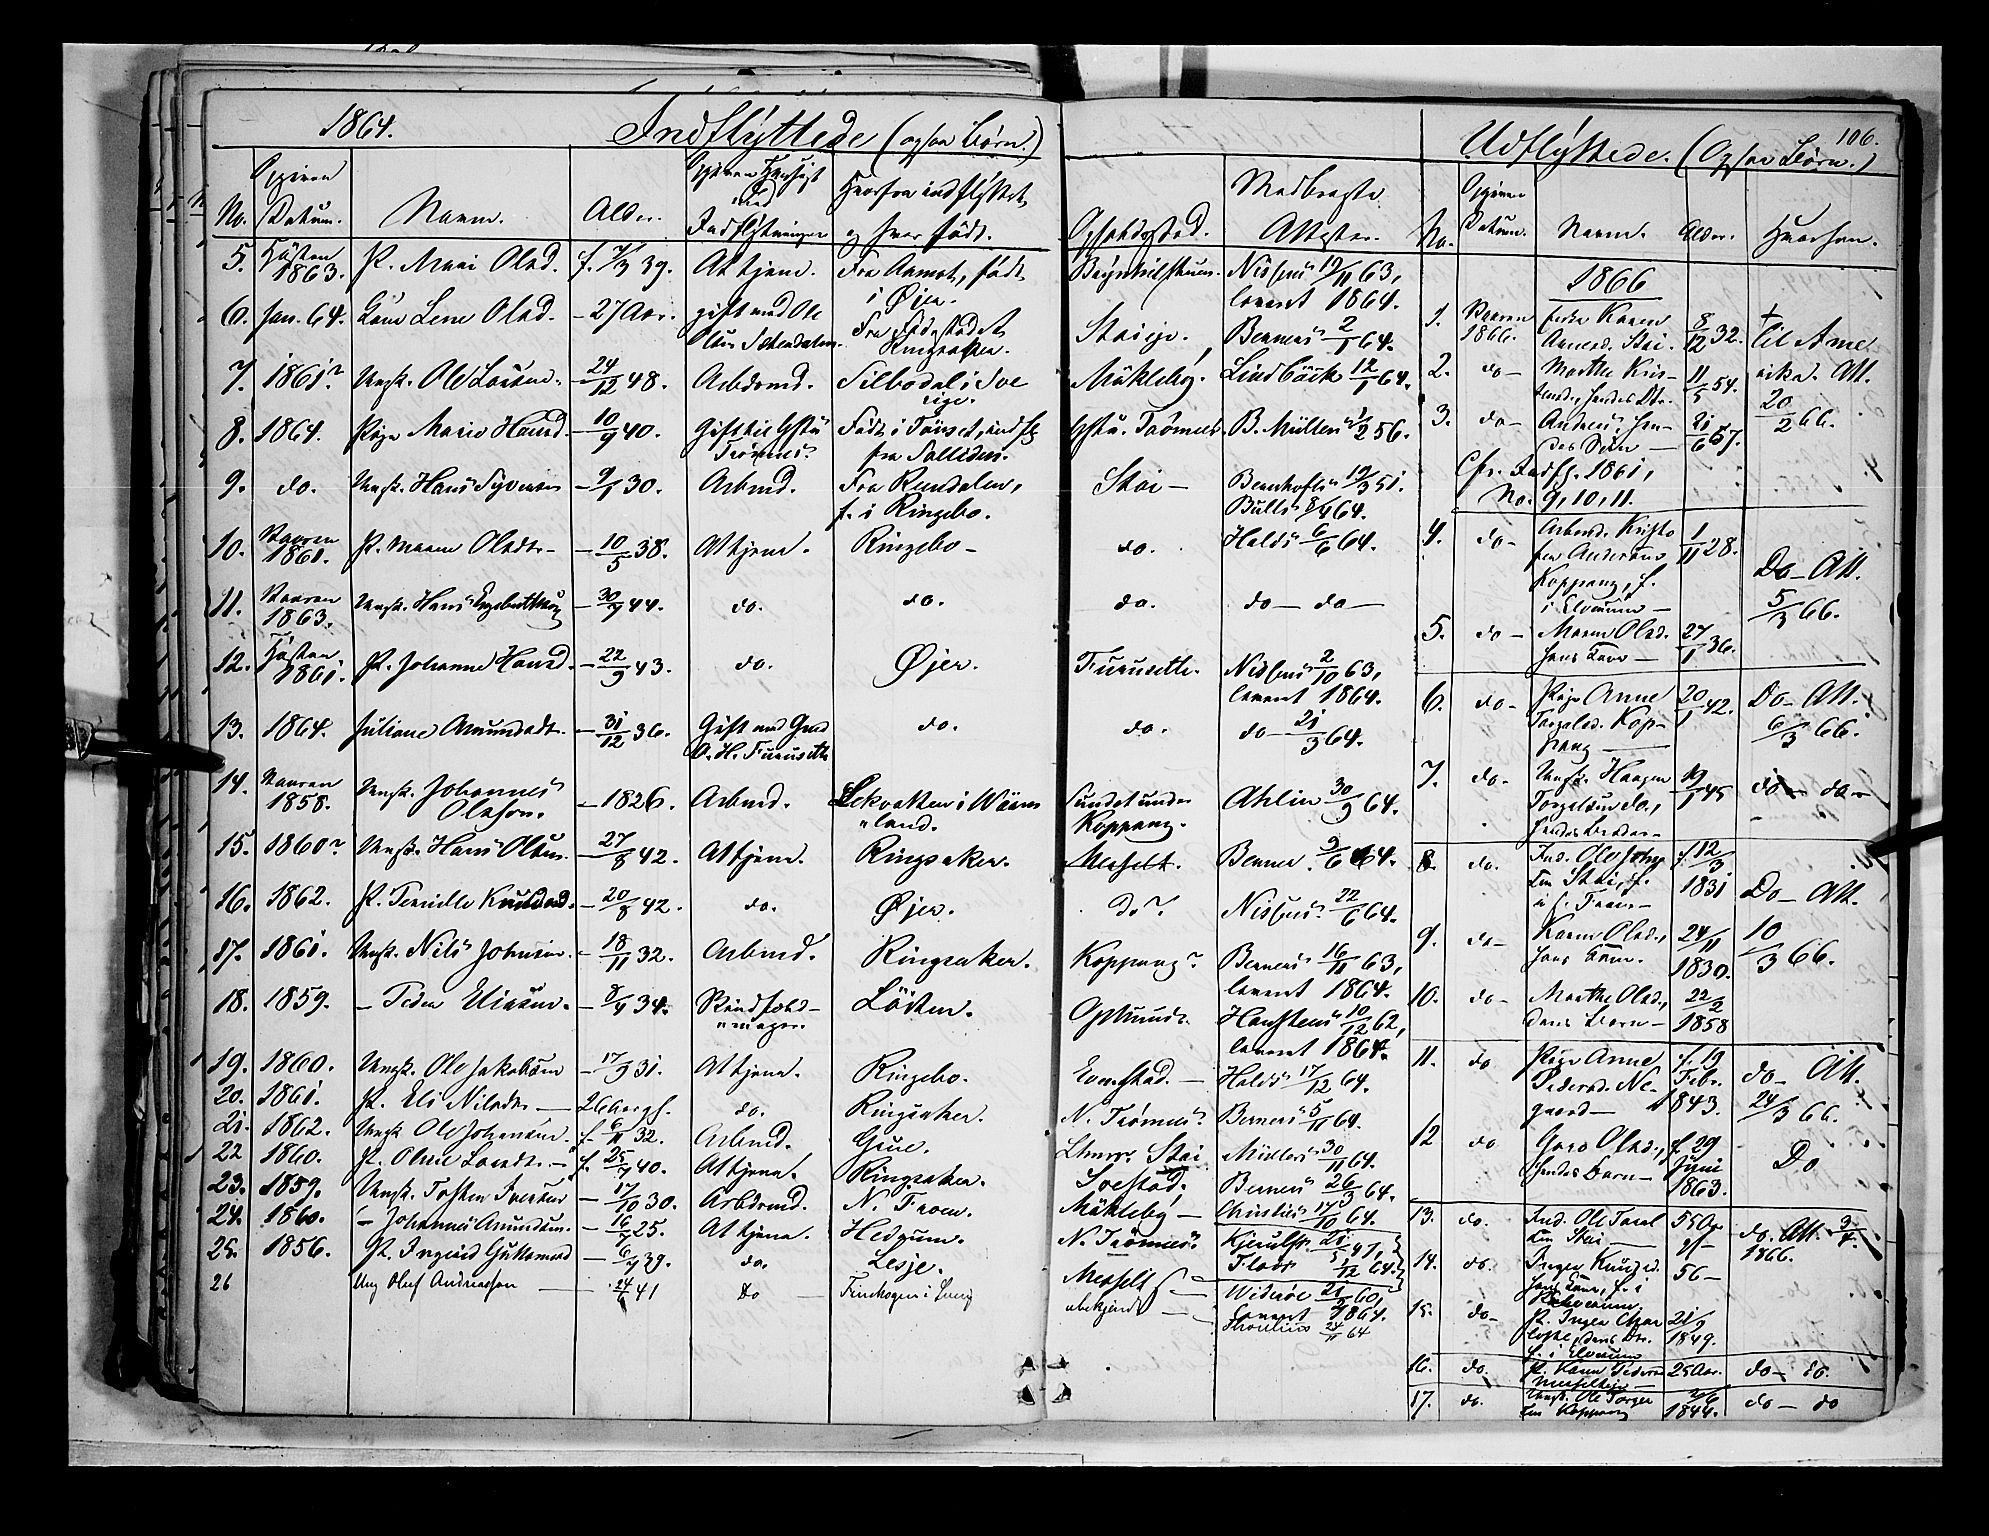 1864. Indflyttede (ogsaa Børn.)
No. Opgiven Datum. Navn. Alder. Opgiven Hensigt med Indflytningen Hvorfra indflyttet og hvor født. Opholdssted. Medbragte Attester.
5. Høsten 1863. P. Mari Olsd. f. 7/3 39. At tjene. Fra Aamot, født i Øjer. Nissens 19/11 63, leveret 1864.
6. Jan. 64. Lene Olsd. – 27 Aar. gift med Ole Fra Fådested Ringsaker. Stai Benners 2/1 64.
7. 1861? Ungk. Ole Larsen. – 24/12 48. Arbdsmd. Silbodal i Sverige. Mükleby. Lindbäck 12/1 64.
8. 1864. Pige Marie Hansd. – 10/9 40. Gift til Trønnes. Født i Tønset, indfl. fra Solliden. Trønnes. B. Müllers 56.
9. do. Ungk. Hans Syversen – 9/1 30. Arbmd. Fra Rendalen, f. i Ringebo. Stai – 19/3 51. Bulls 8/4 64.
10. Vaaren 1861. P. Maren Olsdtr – 10/5 38. At tjene. Ringebo – do. Holds 6/6 64.
11. Vaaren 1863. Ungk. Hans Engebrethsen – 30/7 44. do. do. do. do – do –
12. Høsten 1861. P. Johanne Hansd. – 22/9 43. do. Øjer. Furusette. Nissens 2/10 63, leveret 1864.
13. 1864. Juliane Amundsdtr. – 31/12 36. Gift med Gmd O. H. Furusette do. do. do – 21/3 64.
14. Vaaren 1858. Ungk. Johannes Olsson. – 1826. Arbmd. Ekvatten i Wärmland. Sundet under Koppang. Ahlin 30/9 64.
15. 1860? Ungk. Hans Olsen. – 27/8 42. At tjene. Ringsaker. Messelt. Benner 9/6 64.
16. 1862. P. Pernille Knudsd. – 20/8 42. do. Øjer. do? Nissens 22/6 64.
17. 1861. Ungk. Nils Johnsen – 18/11 32. Arbmd. Ringsaker. Koppang? Benners 16/11 63, leveret 1864.
18. 1859. – Peder Eliasen. – 8/4 34. Skindfeldmager. Löiten. Opsund. 10/12 62, leveret 1864.
19. 1860. Ungk. Ole Jakobsen – 17/9 31. At tjene. Ringebo. Evenstad. – Holds 17/12 64.
20. 1861. P. Eli Nilsdtr – 26 Aar gl. do. Ringsaker. N. Trønnes. Benners 5/11 64.
21. 1862. Ungk Ole Johansen. f. 6/11 32. Arbmd. Grue. Stai Müllers 30/11 64.
22 1860. P. Oline Larsdtr. – f. 25/7 40. At tjene. Ringsaker. Svestad. Benners 26/3 64.
23. 1859. Ungk. Tosten Iversen – 17/10 30. Arbdsmd. N. Fron. Mükleby – Christies 17/10 64.
24. 1860. – Johannes Amundsen. – 16/7 25. At tjene. Hedrum. N. Trønnes. Kjerulfs 21/5 47,
25. 1856. P. Ingrid Guttormsd – 6/7 39. do. Lesje. Messelt – Widerøe 21/9 60, leveret 1864.
26 Ung Oluf Andreassen – 24/6 41 Do – ubekjendt 24/11 64
106.
Udflyttede. (Ogsaa Børn.)
No. Opgiven Datum. Navn. Alder. Hvorhen.
1866
1. Vaaren 1866. Enke Karen Stai. 8/12 32. til Amerika. Att. 20/2 66.
2. do – Marthe Kristensd., hendes Dtr. 11/5 54.
3. do – Andreas, hendes Søn – 21/6 57.
Cfr. Indfl. 1861, No. 9, 10, 11.
4. do – Arbmd. Kristofer Andersen Koppang, f. i Elverum – 1/11 28. Do – Att. 5/3 66.
5. do – Maren Olsd. hans Kone – 27/1 36.
6. do – Pige Anne Torgalsd. Koppang – 20/1 42. Do – Att. 6/3 66.
7. do – Ungk. Haagen Torgalsen do., hendes Broder – 19/1 45 do – do –
8. do. Ind. Ole Stai, f. i f. 12/3 1831 Do – Att. 10/3 66.
9. do – Karen Olsd., hans Kone. 24/11 1830.
10. do – Marthe Olsd., deres Barn – 22/2 1858
11. do Pige Anne Pedersd. Negaard – f. 19 Febr. 1843. do – Att. 24/3 66.
12 do Olsd., hendes Barn – f. 29 Juni 1863. Do
13. do. Ind. Ole Stai – 55 Aar do. Att. 3/4. 1866.
14. do. Inger Knudsd. hans Kone, f. i Elverum 56 –
15. do – P. Inger deres Dtr. f. i Elverum 21/9 1849.
16. do. P. Karen Peders. Messeltеie 25 Aar. do – do.
17. do. Ungk. Ole Torgersen Koppang 2/6 1844. do – do